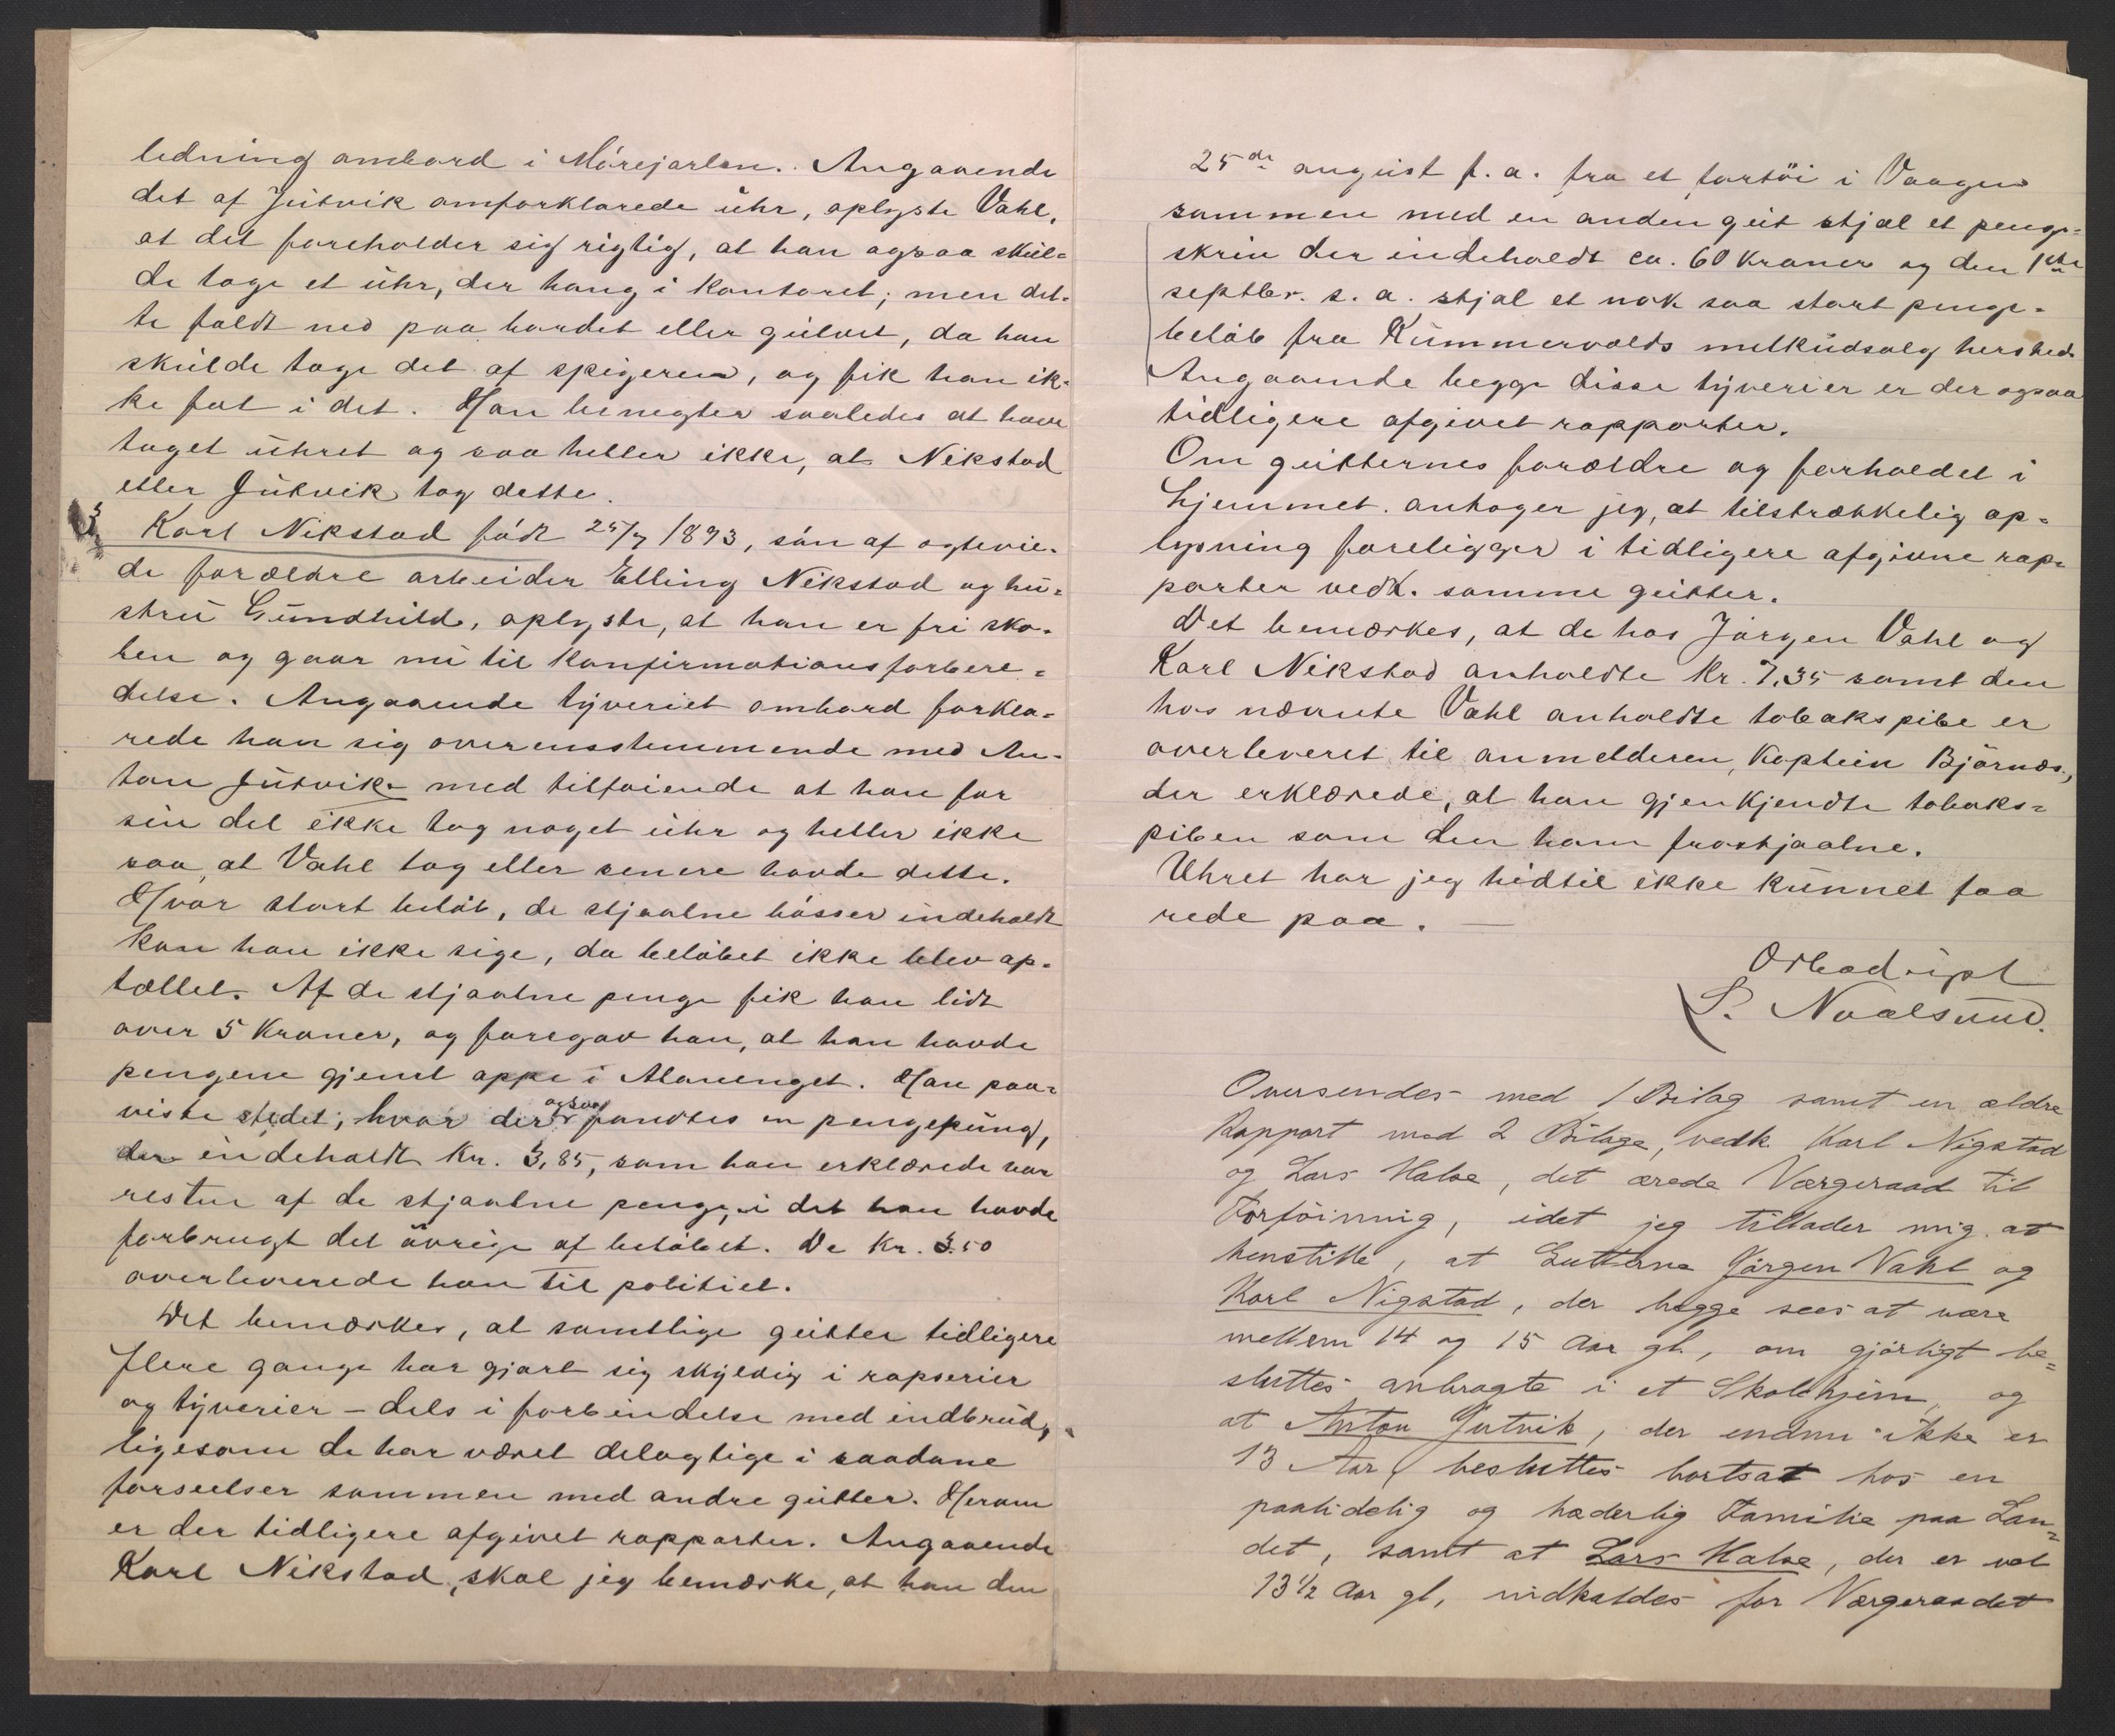 ledning ombord i Mørejarlen. Angaaende
det af Jutvik omforklarede uhr, oplyste Vahl,
at det foreholder sig rigtig, at han ogsaa skul-
de tage et uhr, der hang i kontoret; men det-
te faldt ned paa bordet eller gulvet, da han
skulde tage det af spigeren, og fik han ik-
ke fat i det. Han benegter saaledes at have
taget uhret og saa heller ikke, at Nekstad
eller Jutvik tog dette.
3 Karl Nekstad født 25/7 1893, søn af egtevie-
de forældre arbeider Elling Nekstad og hu-
stru Gundhild, oplyste, at han er fri sko-
len og gaar nu til konfirmationsforbere-
delse. Angaaende tyveriet ombord forkla-
rede han sig overensstemmende med An-
ton Jutvik med tilføiende at han for
sin del ikke tog noget uhr og heller ikke
saa, at Vahl tog eller senere havde dette.
Hvor stort beløb, de stjaalne bøsser indeholdt
kan han ikke sige, da beløbet ikke blev op-
tællet. Af de stjaalne penge fik han lidt
over 5 kroner, og foregav han, at han havde
pengene gjemt oppe i Alouenget. Han paa-
viste stedet, hvor der ogsaa fandtes en pengepung,
der indeholdt Kr. 3,85, som han erklærede var
resten af de stjaalne penge, i det han havde
forbrugt det øvrige af beløbet. De Kr. 3.50
overleverede han til politiet.
Det bemærkes, at samtlige gutter tidligere
flere gange har gjort sig skyldig i rapserier
og tyverier - dels i forbindelse med indbrud,
ligesom de har været delagtige i saadane
forseelser sammen med andre gutter. Herom
er der tidligere afgivet rapporter. Angaaende
Karl Nekstad, skal jeg bemærke, at han den
25de august f. a. fra et fartøi i Vaagen
sammen med en anden gut stjal et penge-
skrin der indeholdt ca. 60 kroner og den 1ste
septbr. s. a. stjal et nok saa stort penge-
beløb fra Kummervolds melkudsalg hersteds
Angaaende begge disse tyverier er der ogsaa
tidligere afgivet rapporter.
Om gutternes forældre og forholdet i
hjemmet antager jeg, at tilstrækkelig op-
lysning foreligger i tidligere afgivne rap-
porter vedk. samme gutter.
Det bemærkes, at de hos Jørgen Vahl og
Karl Nekstad anholdte Kr. 7,35 samt den
hos nævnte Vahl anholdte tobakspibe er
overleveret til anmelderen, Kaptein Bjørnæs,
der erklærede, at han gjenkjendte tobaks-
piben som den ham frastjaalne.
Uhret har jeg hidtil ikke kunnet faa
rede paa. —
Ørbødigst
S. Naalsund.
Oversendes med 1 Bilag samt en ældre
Rapport med 2 Bilage, vedk. Karl Nigstad
og Lars Halse, det ærede Værgeraad til
Forføining, idet jeg tillader mig at
henstille, at Gutterne Jørgen Vahl og
Karl Nigstad, der begge sees at være
mellem 14 og 15 Aar gl., om gjørligt be-
sluttes anbragte i et Skolehjem, og
at Anton Jutvik, der endnu ikke er
13 Aar, besluttes bortsat hos en
paalidelig og hæderlig Familie paa Lan-
det, samt at Lars Halse, der er vel
13 1/2 Aar gl, indkaldes for Værgeraadet